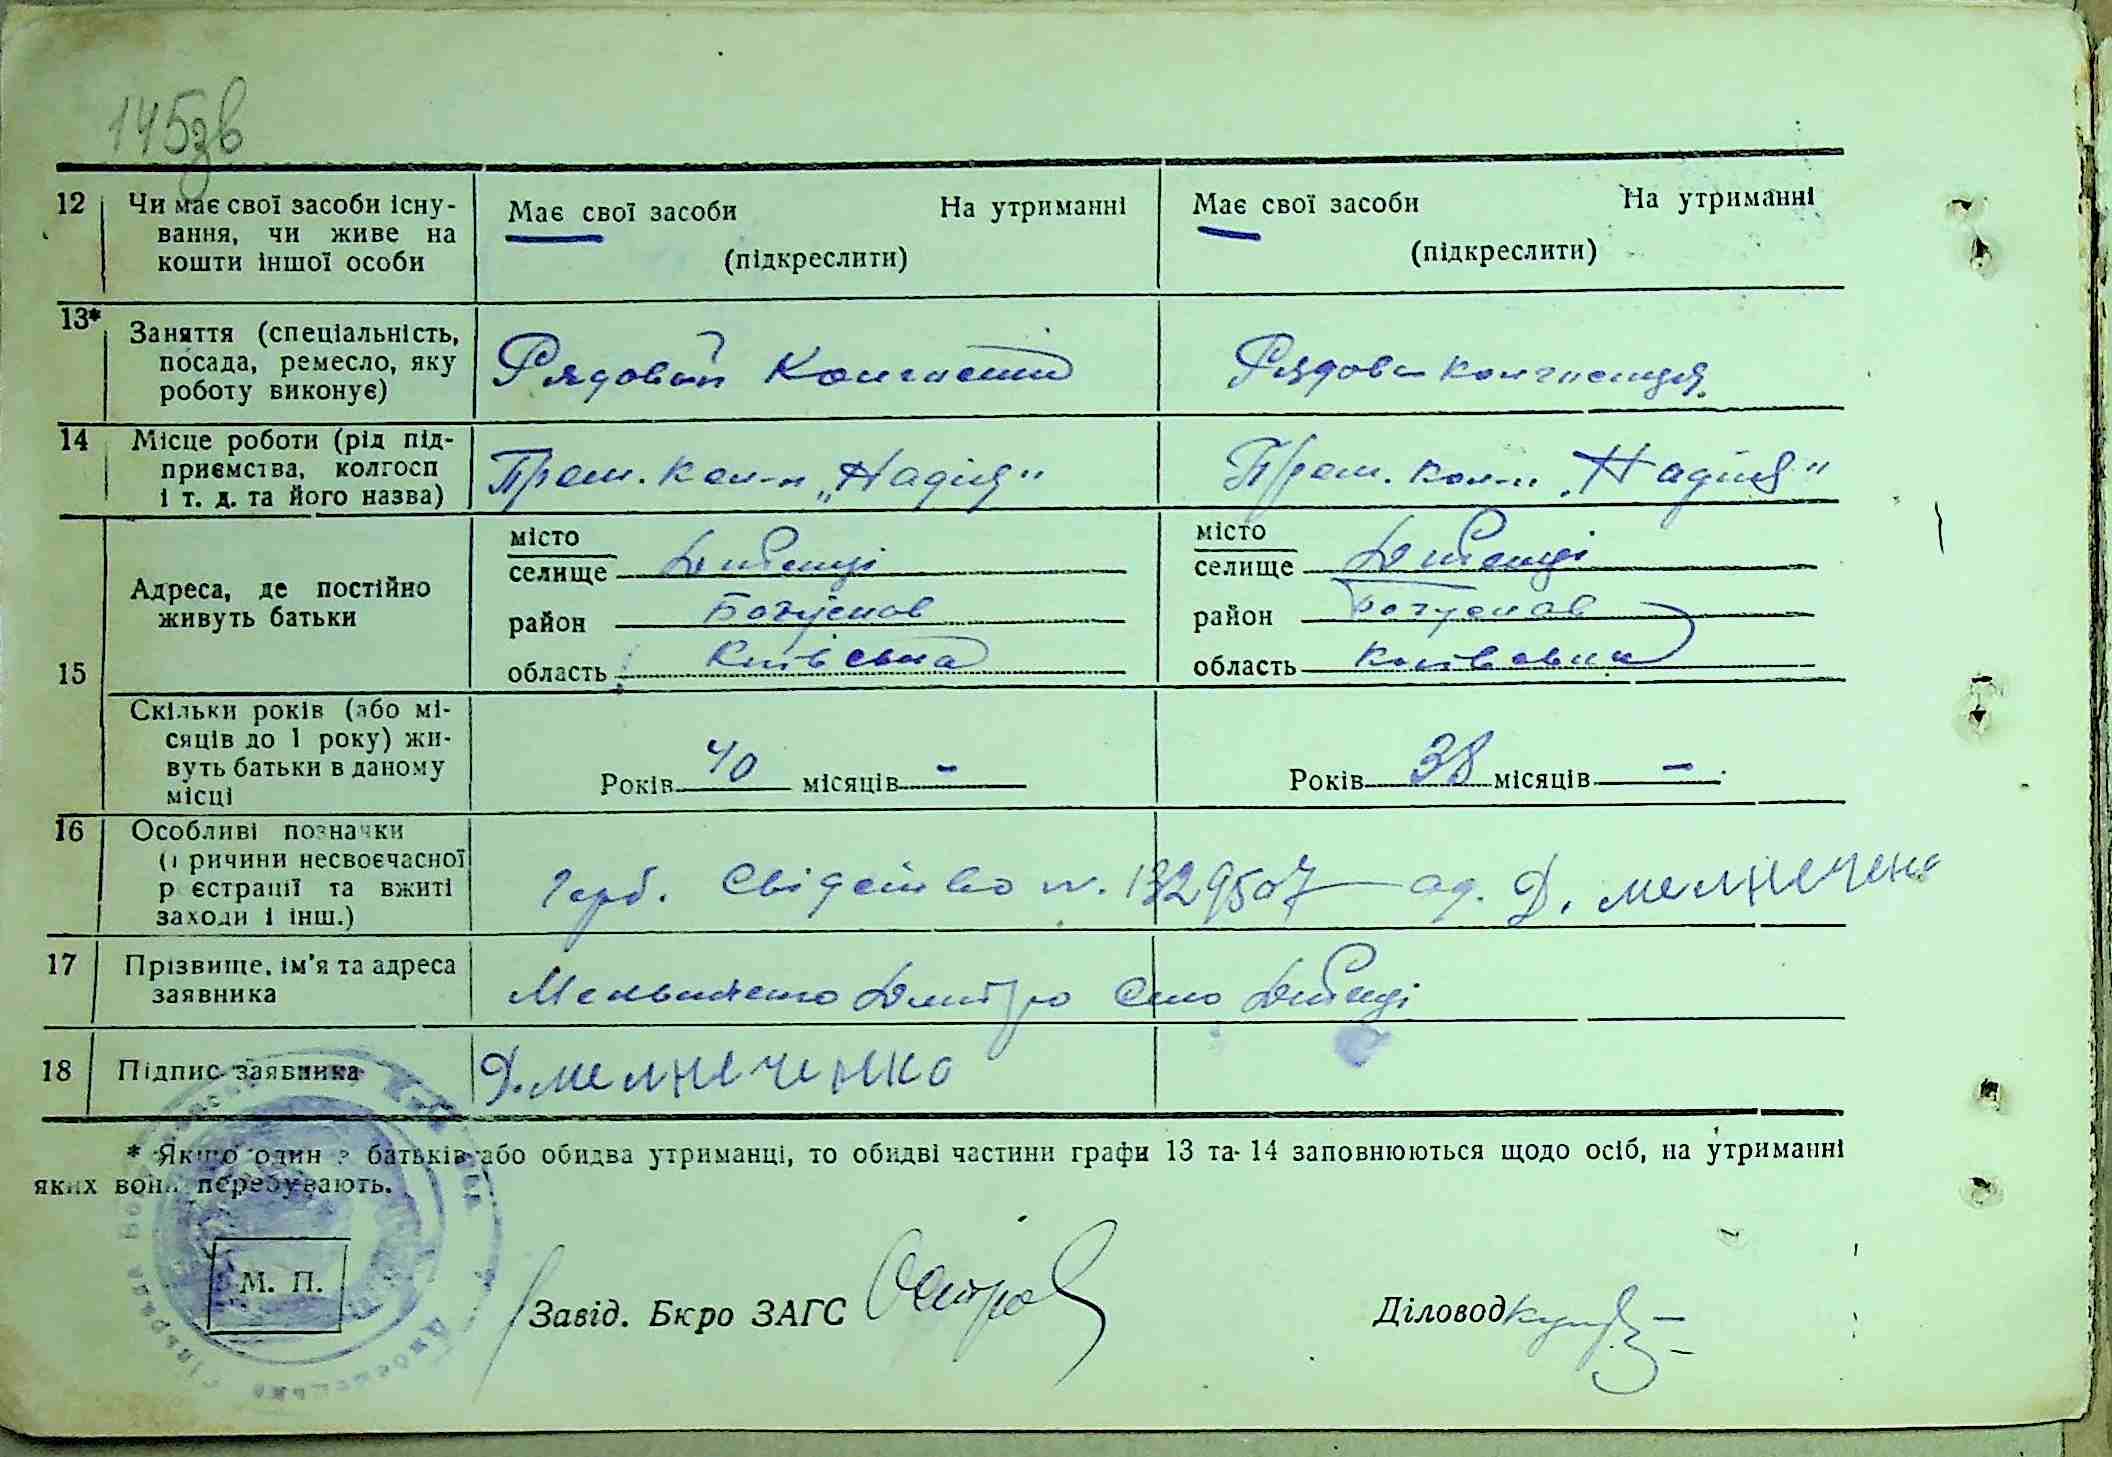 145зв
12 Чи має свої засоби існу-
вання, чи живе на
кошти іншої особи
Має свої засоби На утриманні
(підкреслити)
Має свої засоби На утриманні
(підкреслити)
13* Заняття (спеціальність,
посада, ремесло, яку
роботу виконує)
Рядовий Колгоспник
Рядова колгоспниця
14 Місце роботи (рід під-
приємства, колгосп
і т. д. та його назва)
кол-п „Надія"
кол-п „Надія"
15 Адреса, де постійно
живуть батьки
місто
селище Дибенці
район Богуслав
область Київська
місто
селище Дибенці
район Богуслав
область Київська
Скільки років (або мі-
сяців до 1 року) жи-
вуть батьки в даному
місці
Років 40 місяців -
Років 38 місяців -
16 Особливі позначки
(причини несвоєчасної
реєстрації та вжиті
заходи і інш.)
герб. Свідоцтво N. 1329507 од. Д. мелнечено
17 Прізвище, ім'я та адреса
заявника
Мельниченко Дмитро село Дибенці
18 Підпис заявника
Д. мелнеченко
* Якщо один з батьків або обидва утриманці, то обидві частини графи 13 та 14 заповнюються щодо осіб, на утриманні
яких вони перебувають.
М. П.
Завід. Бюро ЗАГС
Діловод